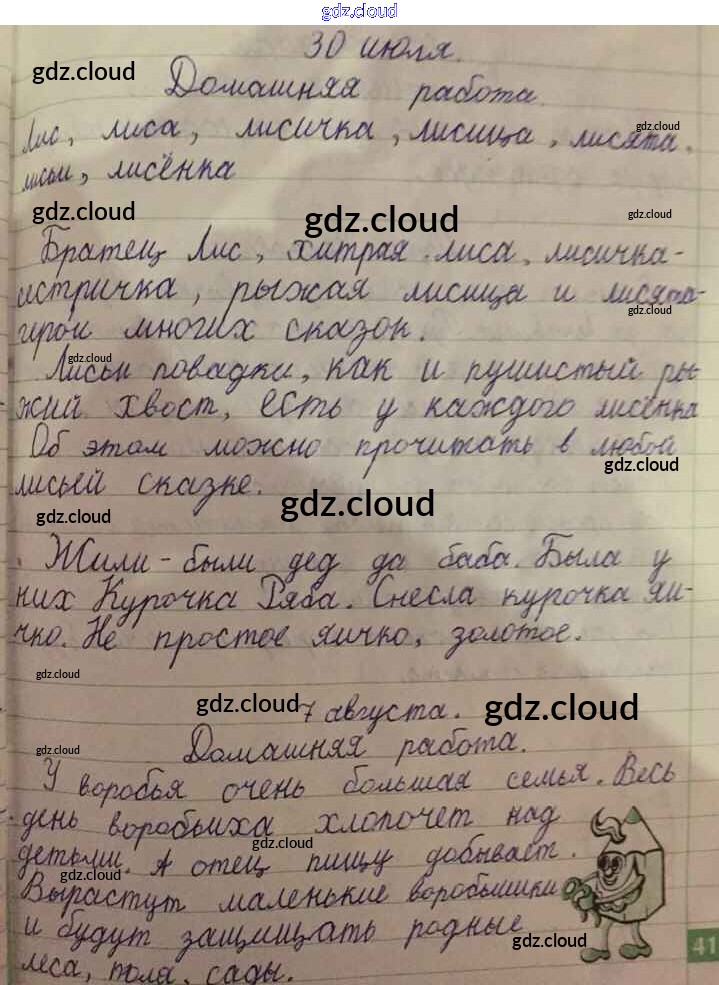 gdz.cloud
30 июля.
gdz.cloud
Домашняя работа.
gdz.cloud
Лис, лиса, лисичка, лисица, лисята,
gdz.cloud
лисьи, лисёнка
gdz.cloud
gdz.cloud
gdz.cloud
Братец Лис, хитрая лиса, лисичка-
сестричка, рыжая лисица и лисята-
gdz.cloud
герои многих сказок.
gdz.cloud
Лисьи повадки, как и пушистый ры-
жий хвост, есть у каждого лисёнка
Об этом можно прочитать в любой
gdz.cloud
лисьей сказке.
gdz.cloud
gdz.cloud
Жили-были дед да баба. Была у
них Курочка Ряба. Снесла курочка яи-
чко. Не простое яичко, золотое.
gdz.cloud
gdz.cloud
7 августа.
gdz.cloud
Домашняя работа.
gdz.cloud
У воробья очень большая семья. Весь
день воробьиха хлопочет над
gdz.cloud
детьми. А отец пищу добывает.
gdz.cloud
Вырастут маленькие воробышки
и будут защищать родные
gdz.cloud
41
леса, поля, сады.
gdz.cloud